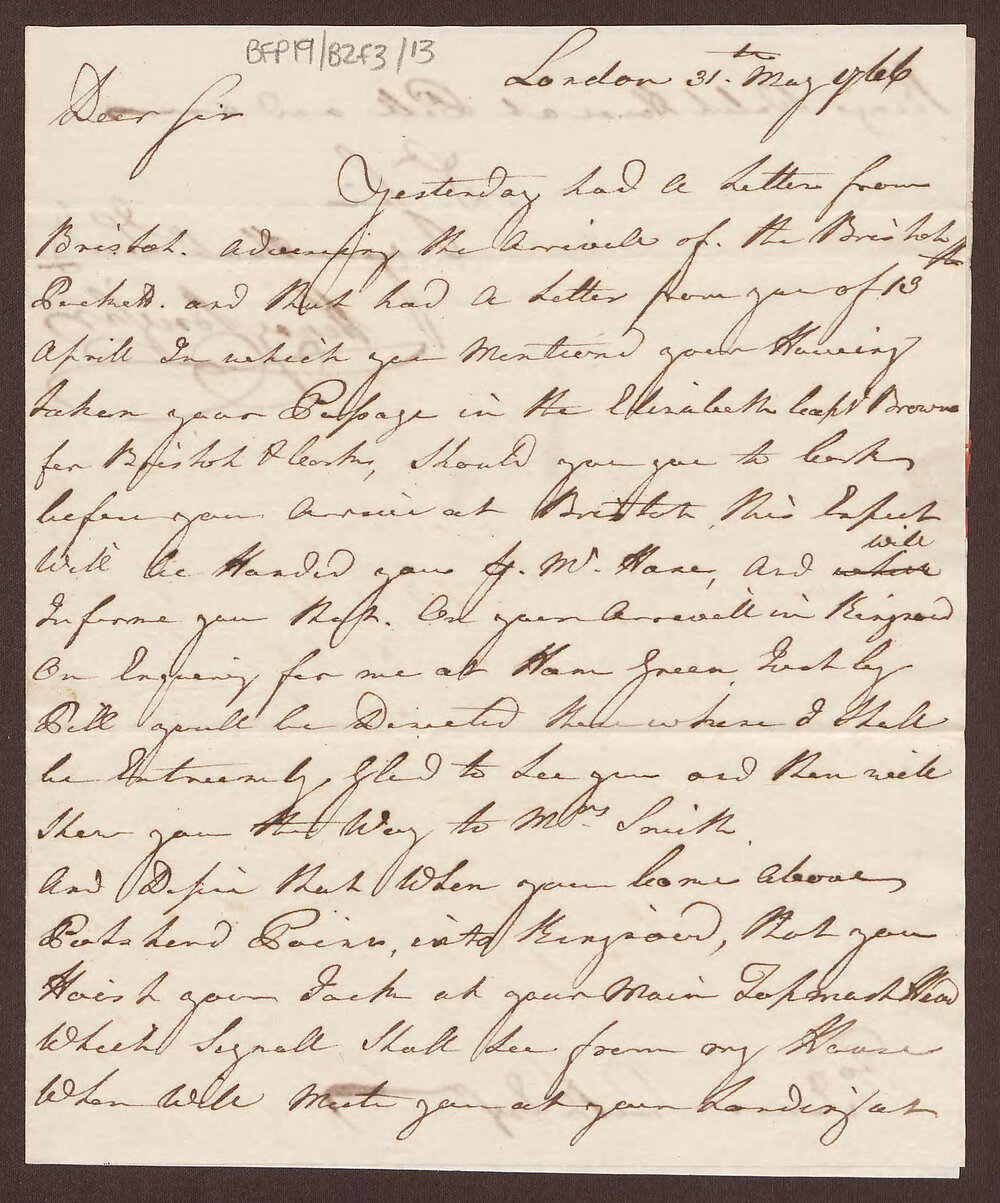 BFP19/B2F3/13
London 31.th May 1766
Dear Sir
Yesterday had A Letter from
Bristoh. Adviceing the Arrivele of. the Bristoh
Packett. and that had A Letter from you of 13th
Aprill In which you Mentiond your Haveing
taken your Passage in the Elizabeth Capt Brown
for Bristoh & Corke, Should you goe to Corke
before you Arrive at Bristoh, this Expect
Will be Handed you by. Mr. Hare, And will
Informe you that. On your Arrivell in Kingroad
On Enquireing for me at Ham Green, Just by
Pill youll be Directed there where I Shall
be Extreemly Glad to See you and then will
Shew you the Way to Mrs Smith
And Desire that When you Come Above
Portshead Point, into Kingroad, that you
Hoist your Jack at your Main Topmast Head
Which Signall Shall See from my House
When Will Meete you at your Landing at